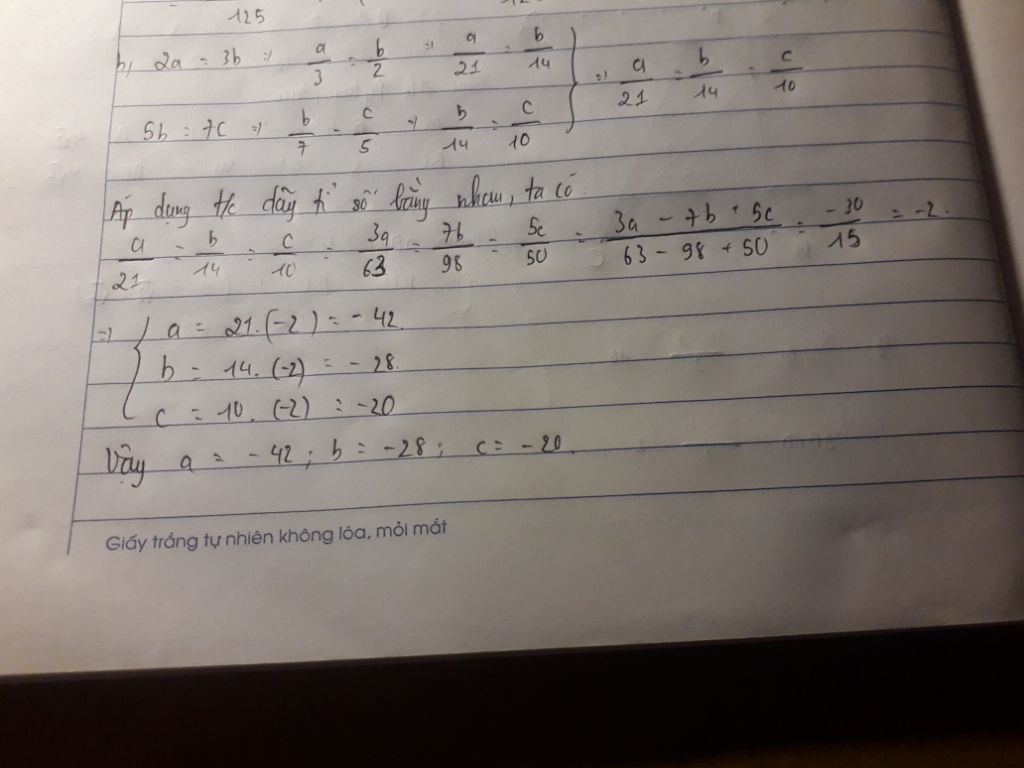 125
b, 2a = 3b => a/3 = b/2 => a/21 = b/14
5b = 7c => b/7 = c/5 => b/14 = c/10
=> a/21 = b/14 = c/10
Áp dụng t/c dãy tỉ số bằng nhau, ta có
a/21 = b/14 = c/10 = 3a/63 = 7b/98 = 5c/50 = 3a - 7b + 5c/63 - 98 + 50 = -30/15 = -2.
=> { a = 21.(-2) = -42.
b = 14.(-2) = -28.
c = 10.(-2) = -20
Vậy a = -42; b = -28; c = -20.
Giấy trắng tự nhiên không lóa, mỏi mắt